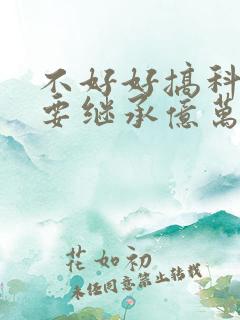 不好好搞科
要继承億萬
花如初
未经同意禁止转载